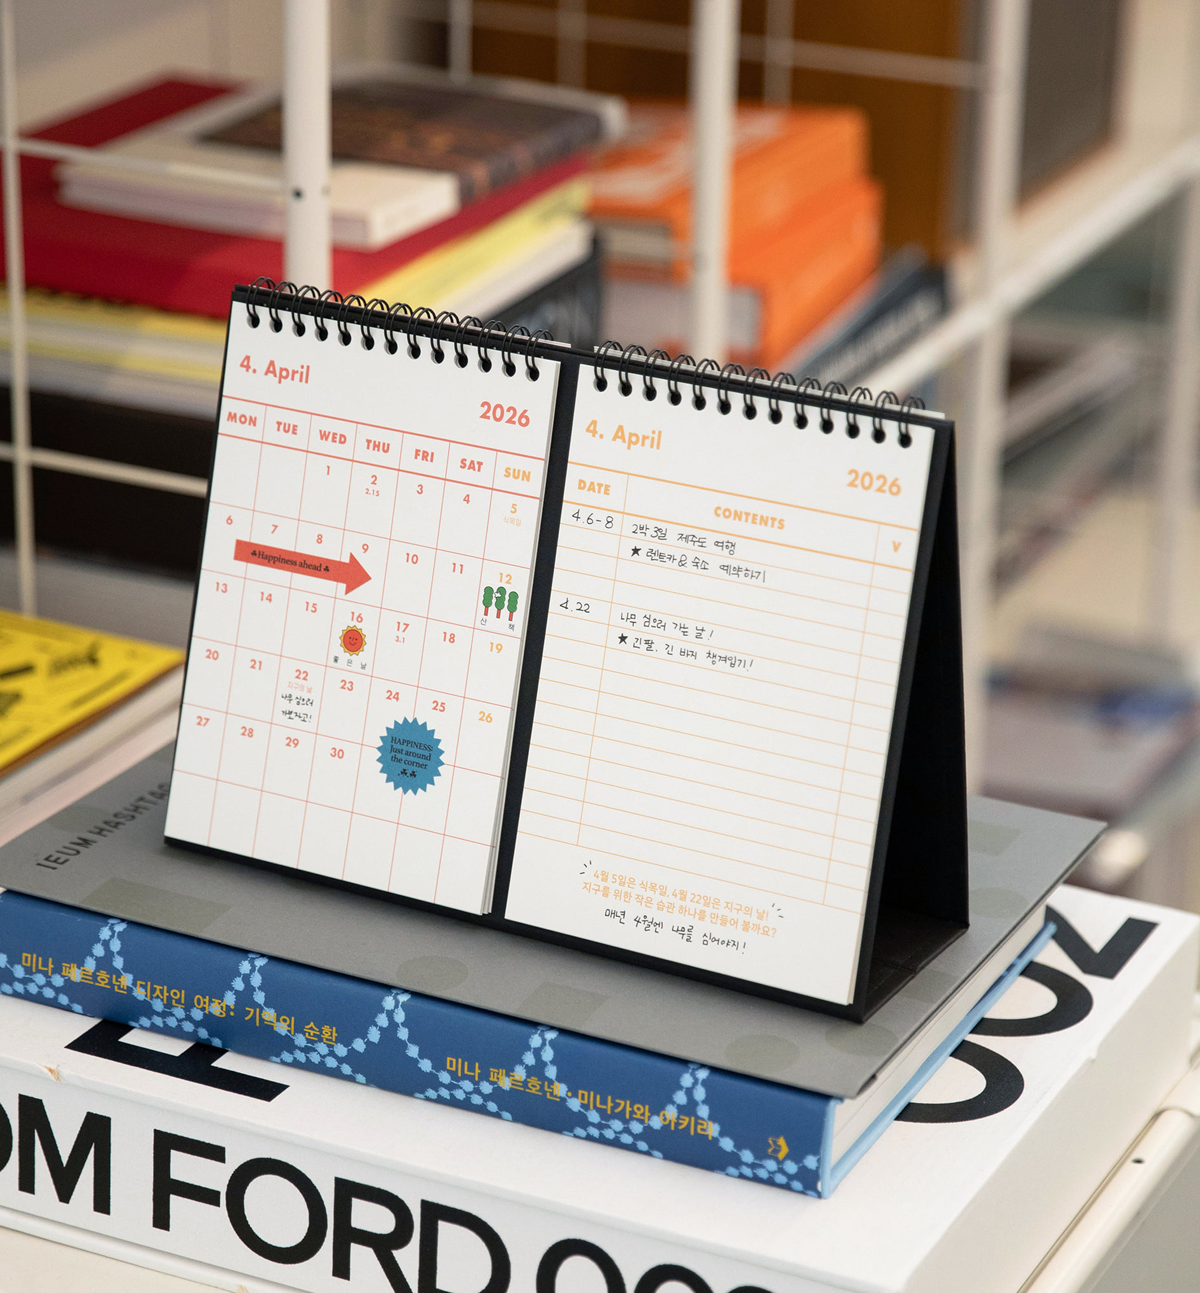 4. April
2026
MON TUE WED THU FRI SAT SUN
1 2 3 4 5
2.15 식목일
6 7 8 9 10 11 12
♣Happiness ahead♣
산 책
13 14 15 16 17 18 19
좋은날 3.1
20 21 22 23 24 25 26
지구의 날
나무 심으러
가보자고!
HAPPINESS:
Just around
the corner
27 28 29 30
4. April
2026
DATE CONTENTS V
4.6-8 2박3일 제주도 여행
★ 렌트카 & 숙소 예약하기
4.22 나무 심으러 가는 날!
★ 긴팔, 긴 바지 챙겨입기!
4월 5일은 식목일, 4월 22일은 지구의 날!
지구를 위한 작은 습관 하나를 만들어 볼까요?
매년 4월엔 나무를 심어야지!
IEUM HASHTAG
미나 페르호넨 디자인 여정: 기억의 순환
미나 페르호넨·미나가와 아키라
OM FORD 002
002